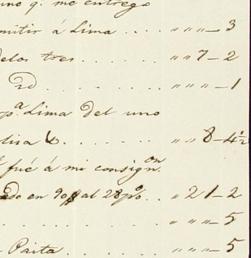 uno q. me entrego
mitir á Lima .... " " " _ 3
delos tres ..... " " 7 _ 2
2d ........ " " " _ 1
pa. Lima del uno
6. ...... " " 8 _ 4½
fué á mi consignon.
do en 90 al 28 po. .. " 21 _ 2
........ " " " _ 5
Paita. ...... " " " _ 5